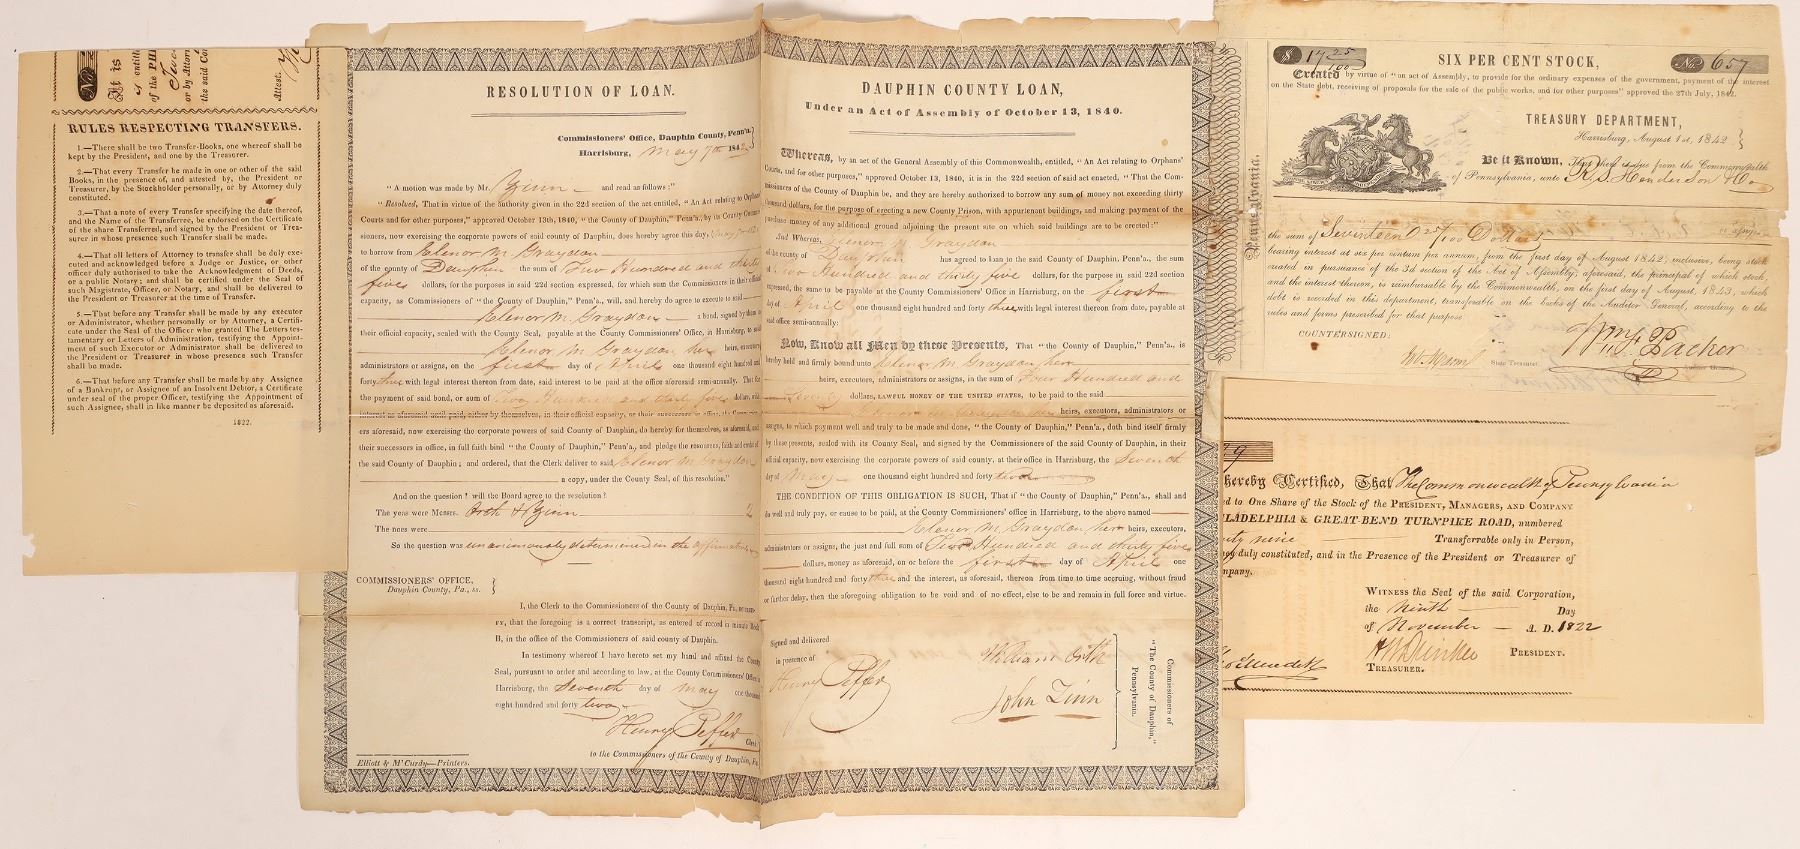 No
It is
A entitle
of the PHI
Twe
or by Attorn
the said Cor
Attest.
RULES RESPECTING TRANSFERS.
1.—There shall be two Transfer-Books, one whereof shall be
kept by the President, and one by the Treasurer.
2.—That every Transfer be made in one or other of the said
Books, in the presence of, and attested, by the President or
Treasurer, by the Stockholder personally, or by Attorney duly
constituted.
3.—That a note of every Transfer specifying the date thereof,
and the Name of the Transferree, be endorsed on the Certificate
of the share Transferred, and signed by the President or Trea-
surer in whose presence such Transfer shall be made.
4.—That all letters of Attorney to transfer shall be duly exe-
cuted and acknowledged before a Judge or Justice, or other
officer duly authorised to take the Acknowledgment of Deeds,
or a public Notary; and shall be certified under the Seal of
such Magistrate, Officer, or Notary, and shall be delivered to
the President or Treasurer at the time of Transfer.
5.—That before any Transfer shall be made by any executor
or Administrator, whether personally or by Attorney, a Certifi-
cate under the Seal of the Officer who granted The Letters tes-
tamentary or Letters of Administration, testifying the Appoint-
ment of such Executor or Administrator shall be delivered to
the President or Treasurer in whose presence such Transfer
shall be made.
6.—That before any Transfer shall be made by any Assignee
of a Bankrupt, or Assignee of an Insolvent Debtor, a Certificate
under seal of the proper Officer, testifying the Appointment of
such Assignee, shall in like manner be deposited as aforesaid.
1822.
RESOLUTION OF LOAN.
Commissioners' Office, Dauphin County, Penn'a.
Harrisburg, May 7th 1842
"A motion was made by Mr. Zinn and read as follows:"
"Resolved, That in virtue of the authority given in the 22d section of the act entitled, "An Act relating to Orphans'
Courts and for other purposes," approved October 13th, 1840, "the County of Dauphin," Penn'a, by its Commis-
sioners, now exercising the corporate powers of said county of Dauphin, does hereby agree this day, May 7 1842
to borrow from Elenor M. Graydon
of the county of Dauphin the sum of Two Hundred and thirty
five dollars, for the purposes in said 22d section expressed, for which sum the Commissioners in their official
capacity, as Commissioners of "the County of Dauphin," Penn'a., will, and hereby do agree to execute to said
Elenor M. Graydon a bond, signed by them in
their official capacity, sealed with the County Seal, payable at the County Commissioners' Office, in Harrisburg, to said
Elenor M. Graydon her heirs, executors,
administrators or assigns, on the first day of April one thousand eight hundred and
forty three with legal interest from date, said interest to be paid at the office aforesaid semi-annually. That for
the payment of said bond, or sum of Two Hundred and thirty five dollars, with
interest as aforesaid until paid, either by themselves, in their official capacity, or their successors in office, the Commission-
ers aforesaid, now exercising the corporate powers of said County of Dauphin, do hereby for themselves, as aforesaid, and
their successors in office, in full faith bind "the County of Dauphin," Penn'a., and pledge the resources, faith and credit of
the said County of Dauphin; and ordered, that the Clerk deliver to said Elenor M Graydon
a copy, under the County Seal, of this resolution."
And on the question? will the Board agree to the resolution?
The yeas were Messrs. Orth & Zinn 2
The noes were
So the question was unanimously determined in the affirmative
COMMISSIONERS' OFFICE,
Dauphin County, Pa., ss.
I, the Clerk to the Commissioners of the County of Dauphin, Pa.
that the foregoing is a correct transcript, as entered of record in minute Book
B, in the office of the Commissioners of said county of Dauphin.
In testimony whereof I have hereto set my hand and affixed the County
Seal, pursuant to order and according to law, at the County Commissioners' Office in
Harrisburg, the Seventh day of May one thousand
eight hundred and forty two
Henry Peffer Clerk
to the Commissioners of the County of Dauphin, Pa.
Elliott & M'Curdy—Printers.
DAUPHIN COUNTY LOAN,
Under an Act of Assembly of October 13, 1840.
Whereas, by an act of the General Assembly of this Commonwealth, entitled, "An Act relating to Orphans'
Courts, and for other purposes," approved October 13, 1840, it is in the 22d section of said act enacted, "That the Com-
missioners of the County of Dauphin be, and they are hereby authorized to borrow any sum of money not exceeding thirty
thousand dollars, for the purpose of erecting a new County Prison, with appurtenant buildings, and making payment of the
purchase money of any additional ground adjoining the present site on which said buildings are to be erected:"
And Whereas, Elenor M. Graydon
of the county of Dauphin has agreed to loan to the said County of Dauphin, Penn'a., the sum
Two Hundred and thirty five dollars, for the purpose in said 22d section
expressed, the same to be payable at the County Commissioners' Office in Harrisburg, on the first
day of April one thousand eight hundred and forty three with legal interest thereon from date, payable at
said office semi-annually:
Now, Know all Men by these Presents, That "the County of Dauphin," Penn'a., is
hereby held and firmly bound unto Elenor M Graydon her
heirs, executors, administrators or assigns, in the sum of Four Hundred and
Seventy dollars, LAWFUL MONEY OF THE UNITED STATES, to be paid to the said
Elenor M Graydon her heirs, executors, administrators or
assigns, to which payment well and truly to be made and done, "the County of Dauphin," Penn'a., doth bind itself firmly
by these presents, sealed with its County Seal, and signed by the Commissioners of the said County of Dauphin, in their
official capacity, now exercising the corporate powers of said county, at their office in Harrisburg, the Seventh
day of May one thousand eight hundred and forty two
THE CONDITION OF THIS OBLIGATION IS SUCH, That if "the County of Dauphin," Penn'a., shall and
do well and truly pay, or cause to be paid, at the County Commissioners' office in Harrisburg, to the above named
Elenor M Graydon her heirs, executors,
administrators or assigns, the just and full sum of Two Hundred and thirty five
dollars, money as aforesaid, on or before the first day of April one
thousand eight hundred and forty three and the interest, as aforesaid, thereon from time to time accruing, without fraud
or further delay, then the aforegoing obligation to be void and of no effect, else to be and remain in full force and virtue.
Signed and delivered
in presence of
Henry Peffer
William Orth
John Zinn
Commissioners of
"The County of Dauphin,"
Pennsylvania.
Pennsylvania.
$ 17 25/100
SIX PER CENT STOCK,
No. 657
Created by virtue of "an act of Assembly, to provide for the ordinary expenses of the government, payment of the interest
on the State debt, receiving of proposals for the sale of the public works, and for other purposes" approved the 27th July, 1842.
TREASURY DEPARTMENT,
Harrisburg, August 1st, 1842
Be it Known, That there is due from the Commonwealth
of Pennsylvania, unto R. S. Henderson & Co
or assigns
the sum of Seventeen & 25/100 Dollars
bearing interest at six per centum per annum, from the first day of August 1842, inclusive, being stock
created in pursuance of the 3d section of the Act of Assembly, aforesaid, the principal of which stock,
and the interest thereon, is reimbursable by the Commonwealth, on the first day of August, 1843, which
debt is recorded in this department, transferable on the books of the Auditor General, according to the
rules and forms prescribed for that purpose
COUNTERSIGNED:
State Treasurer.
Wm. F. Packer
Auditor General.
79
hereby Certified, That The Commonwealth of Pennsylvania
d to One Share of the Stock of the PRESIDENT, MANAGERS, AND COMPANY
LADELPHIA & GREAT-BEND TURNPIKE ROAD, numbered
nty nine Transferrable only in Person,
ney duly constituted, and in the Presence of the President or Treasurer of
mpany.
WITNESS the Seal of the said Corporation,
the Ninth Day
of November A. D. 1822
H W Drinker PRESIDENT.
TREASURER.